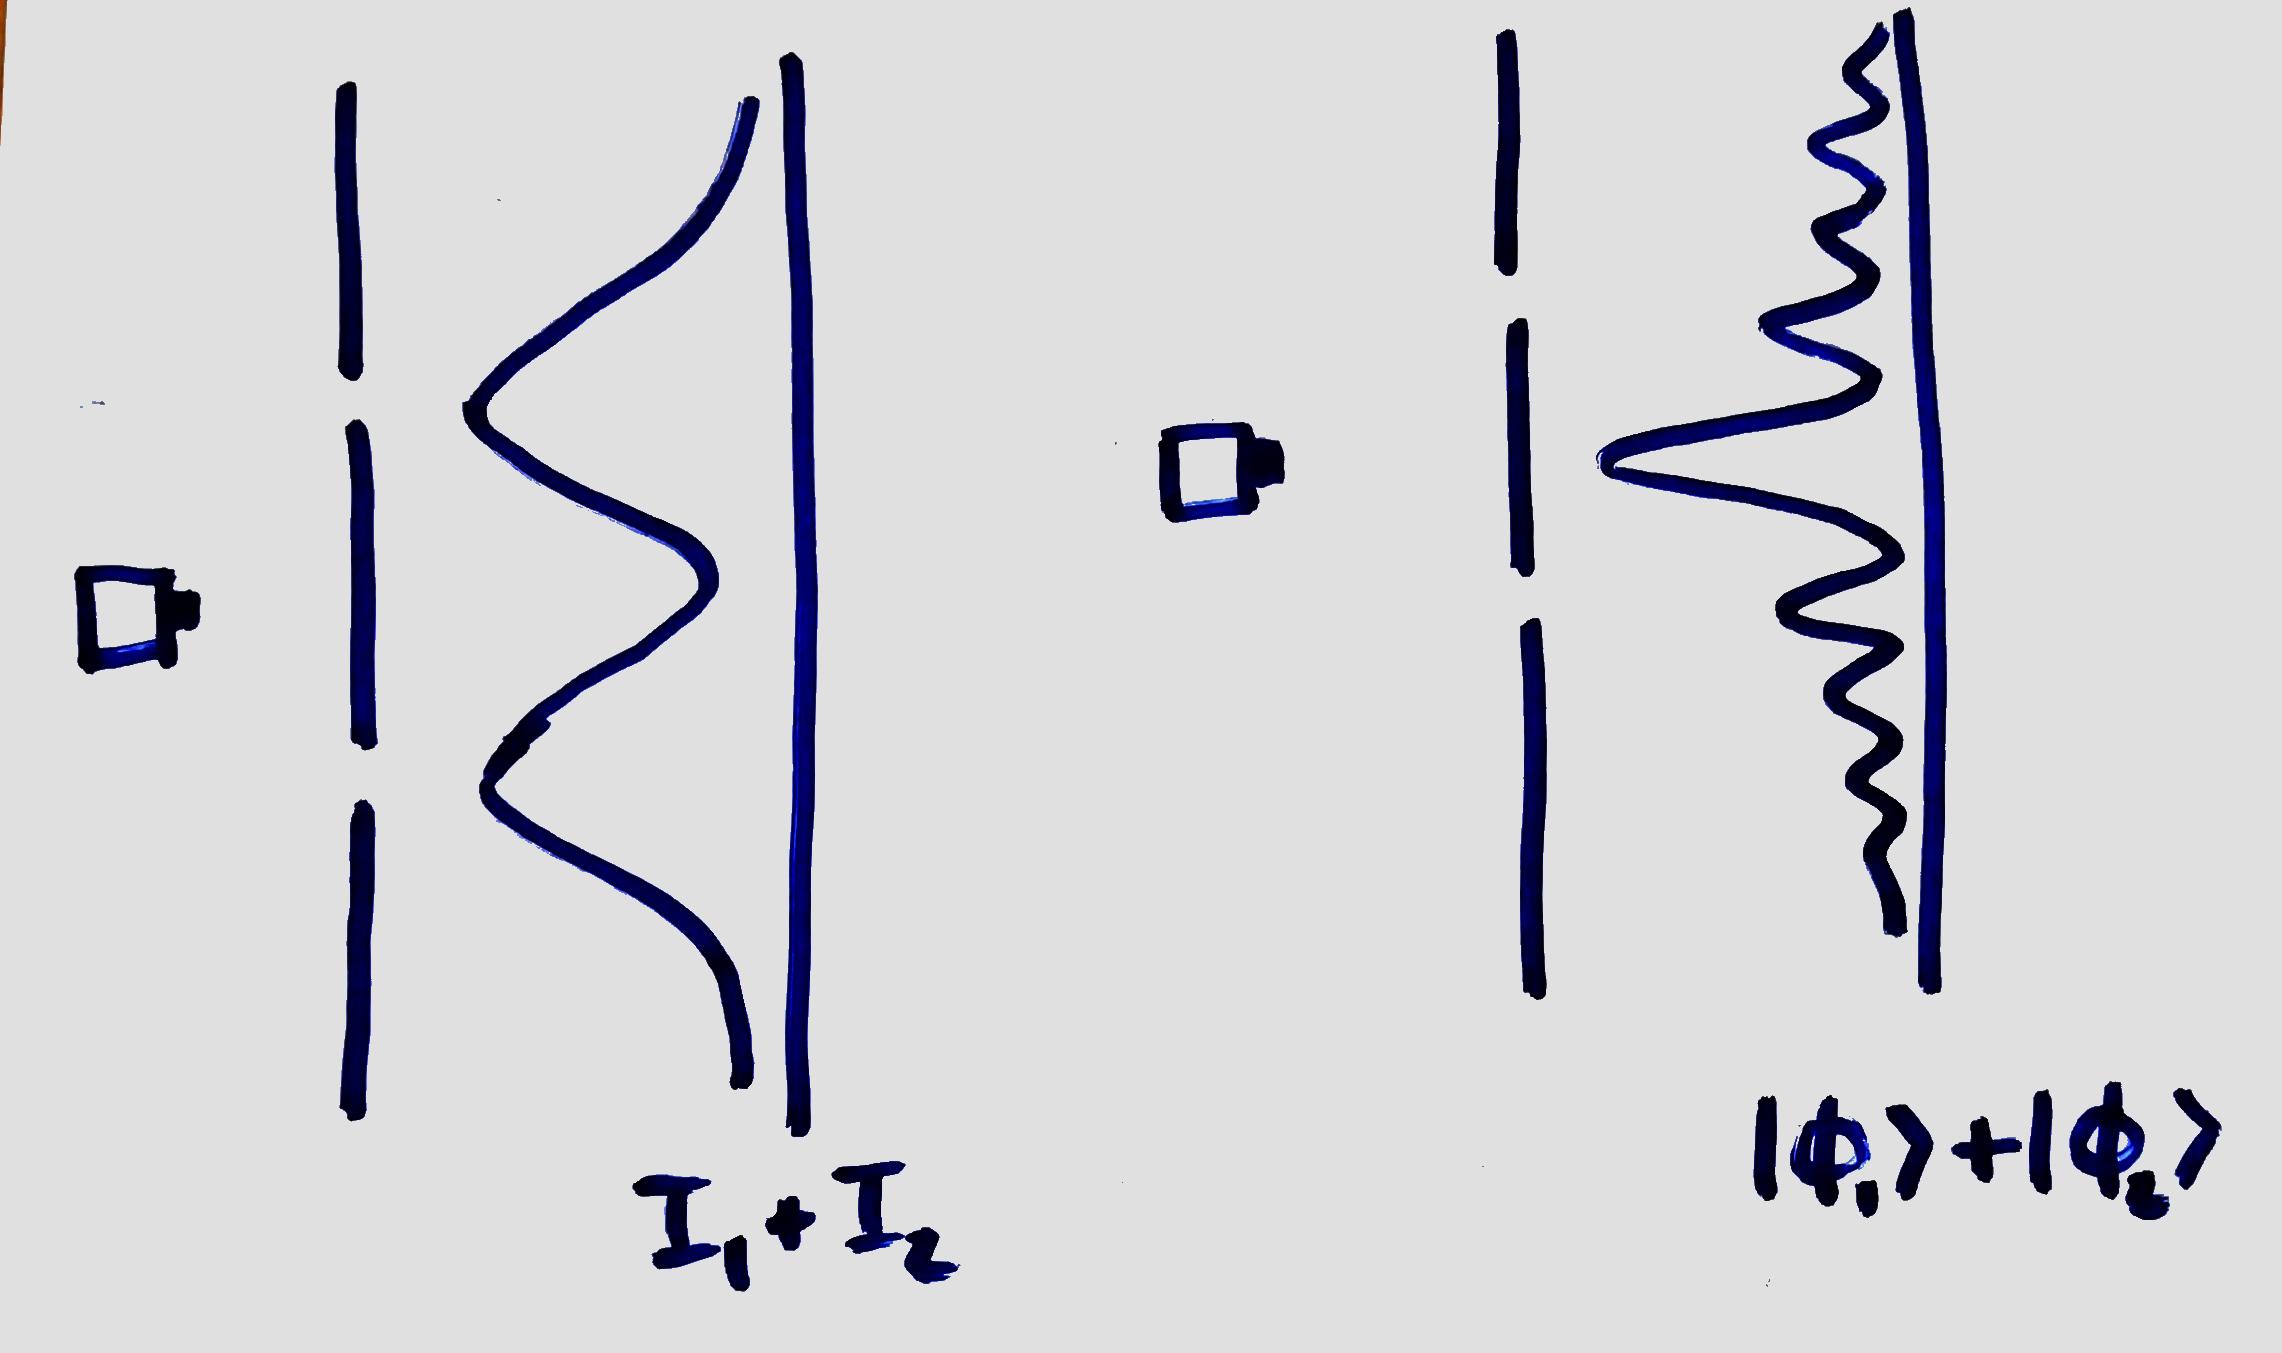 I₁ + I₂
|ϕ₁⟩ + |ϕ₂⟩